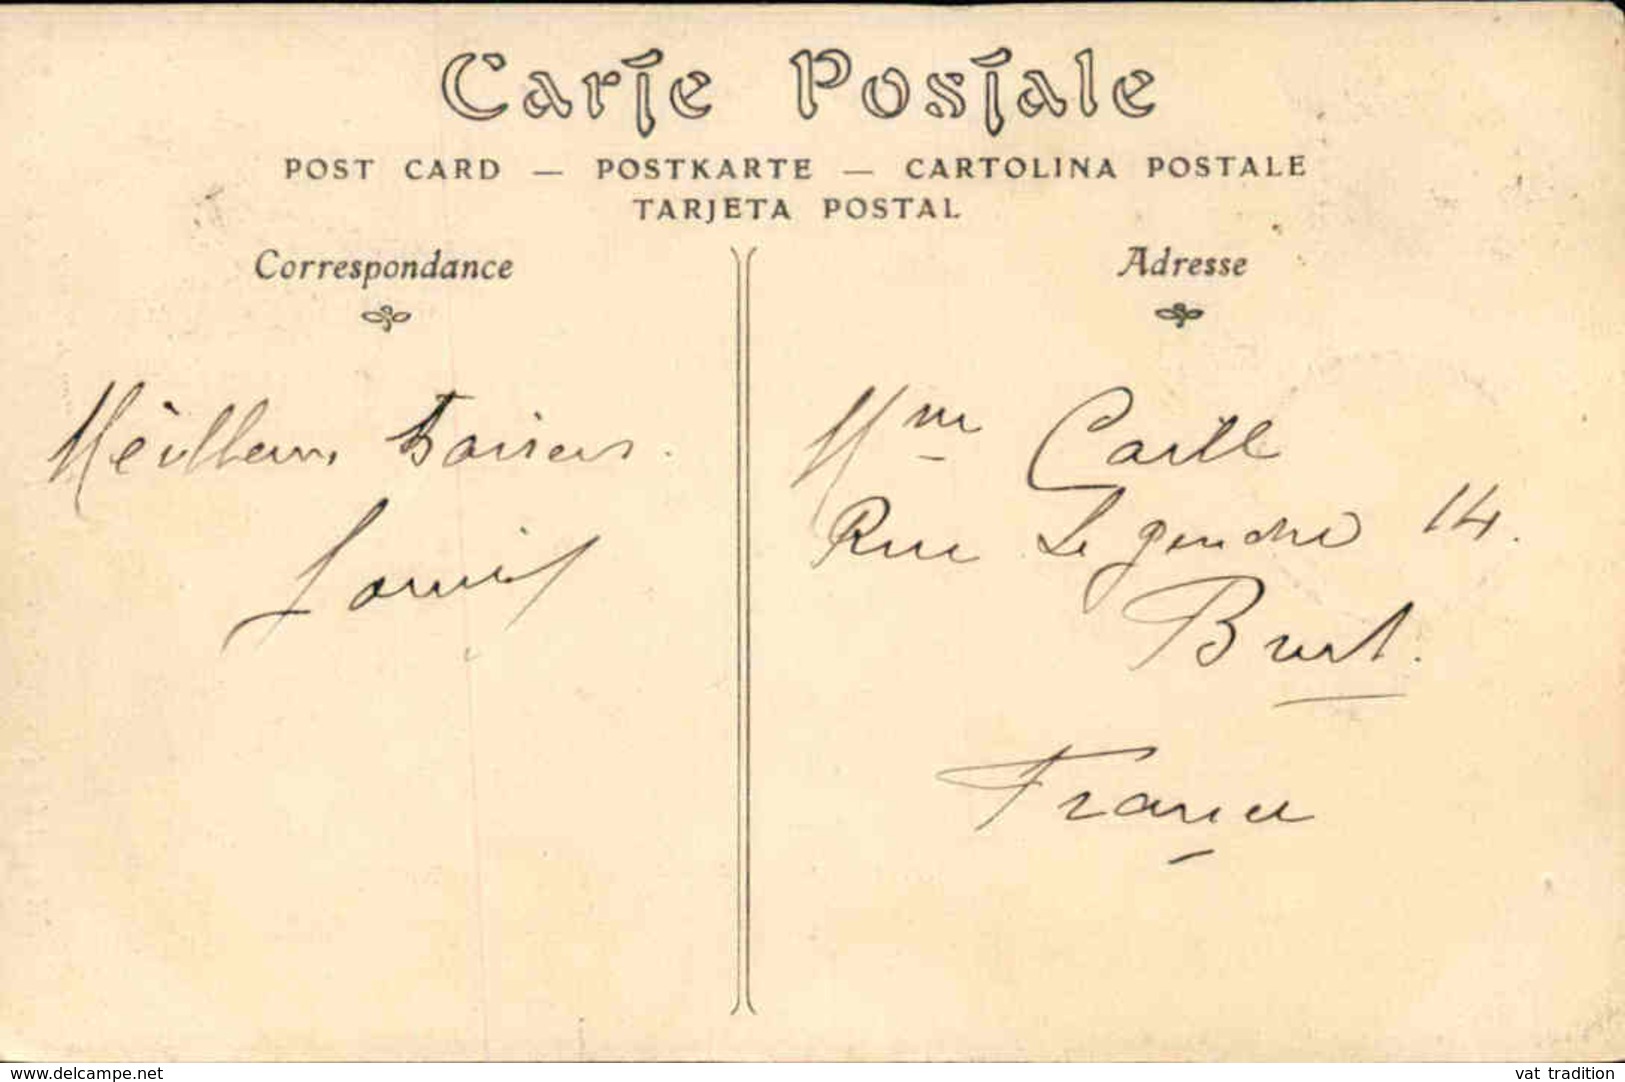 Carte Postale
POST CARD — POSTKARTE — CARTOLINA POSTALE
TARJETA POSTAL
Correspondance
Adresse
Meilleurs Baisers.
Louis
Mme
Rue Le gendre 14.
Brest.
France
www.delcampe.net
vat tradition